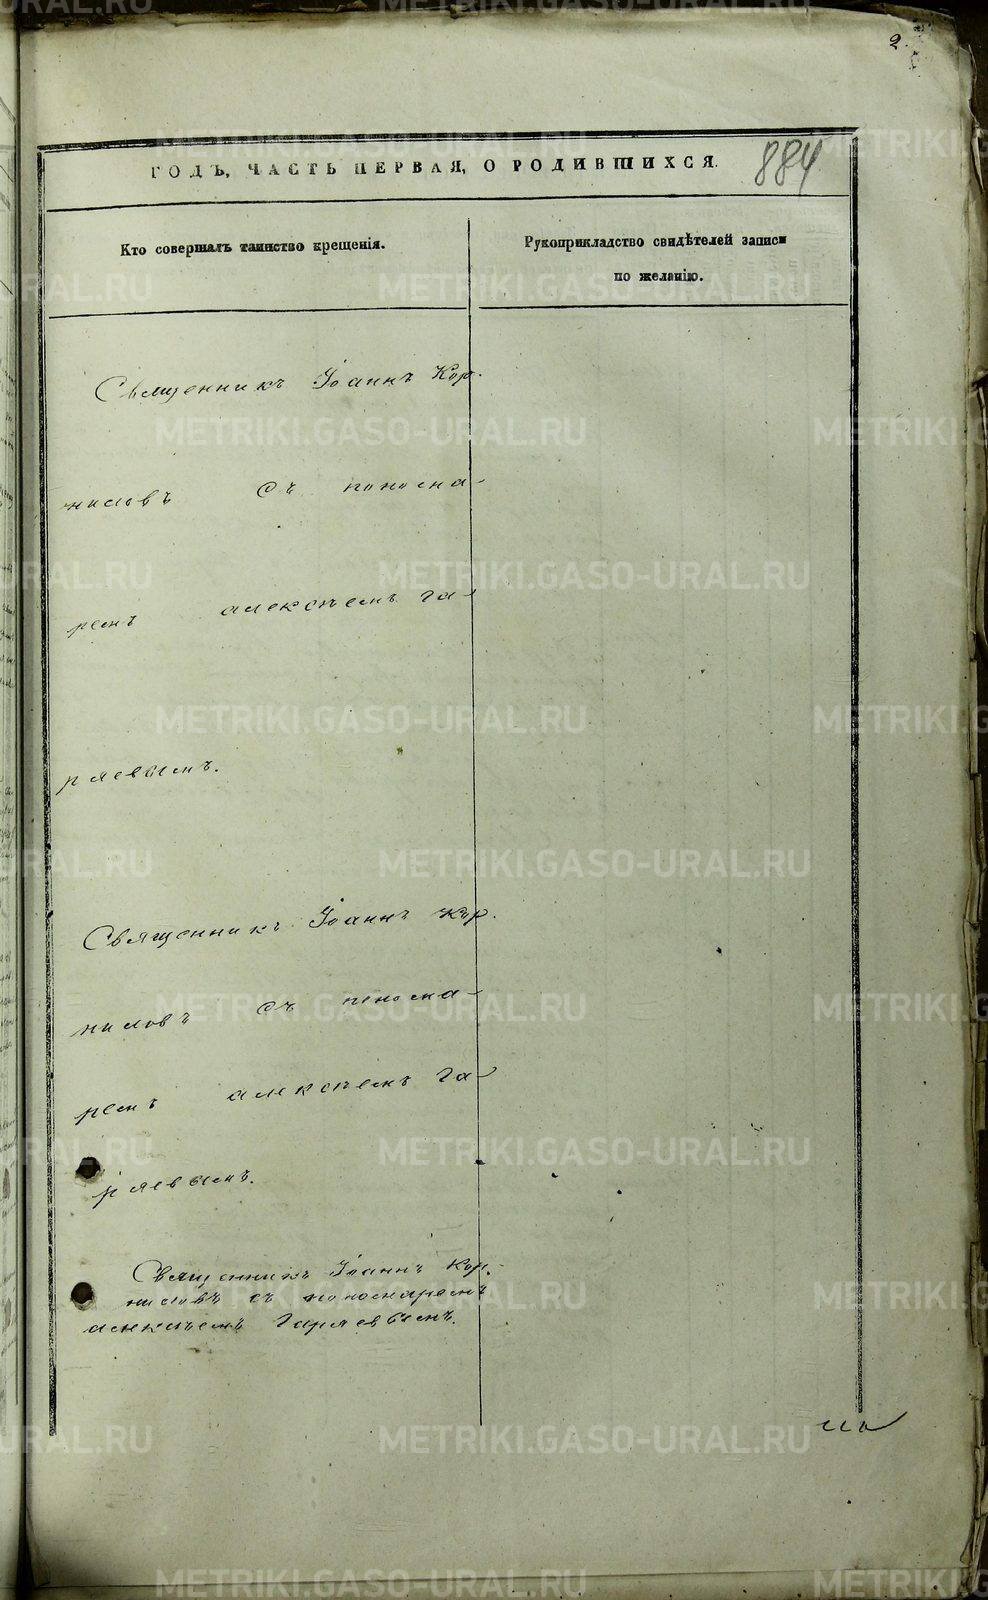 2.
884
ГОДЪ, ЧАСТЬ ПЕРВАЯ, О РОДИВШИХСЯ.
Кто совершалъ таинство крещенія.
Рукоприкладство свидѣтелей записи
по желанію.
Священникъ Іоаннъ Кор-
ниловъ съ пономa-
ремъ алексѣемъ Га-
ряевымъ.
Священникъ Іоаннъ Кор-
ниловъ съ понома-
ремъ алексѣемъ Га-
ряевымъ.
Священникъ Іоаннъ Кор-
ниловъ съ пономаремъ
алексѣемъ Гаряевымъ.
METRIKI.GASO-URAL.RU